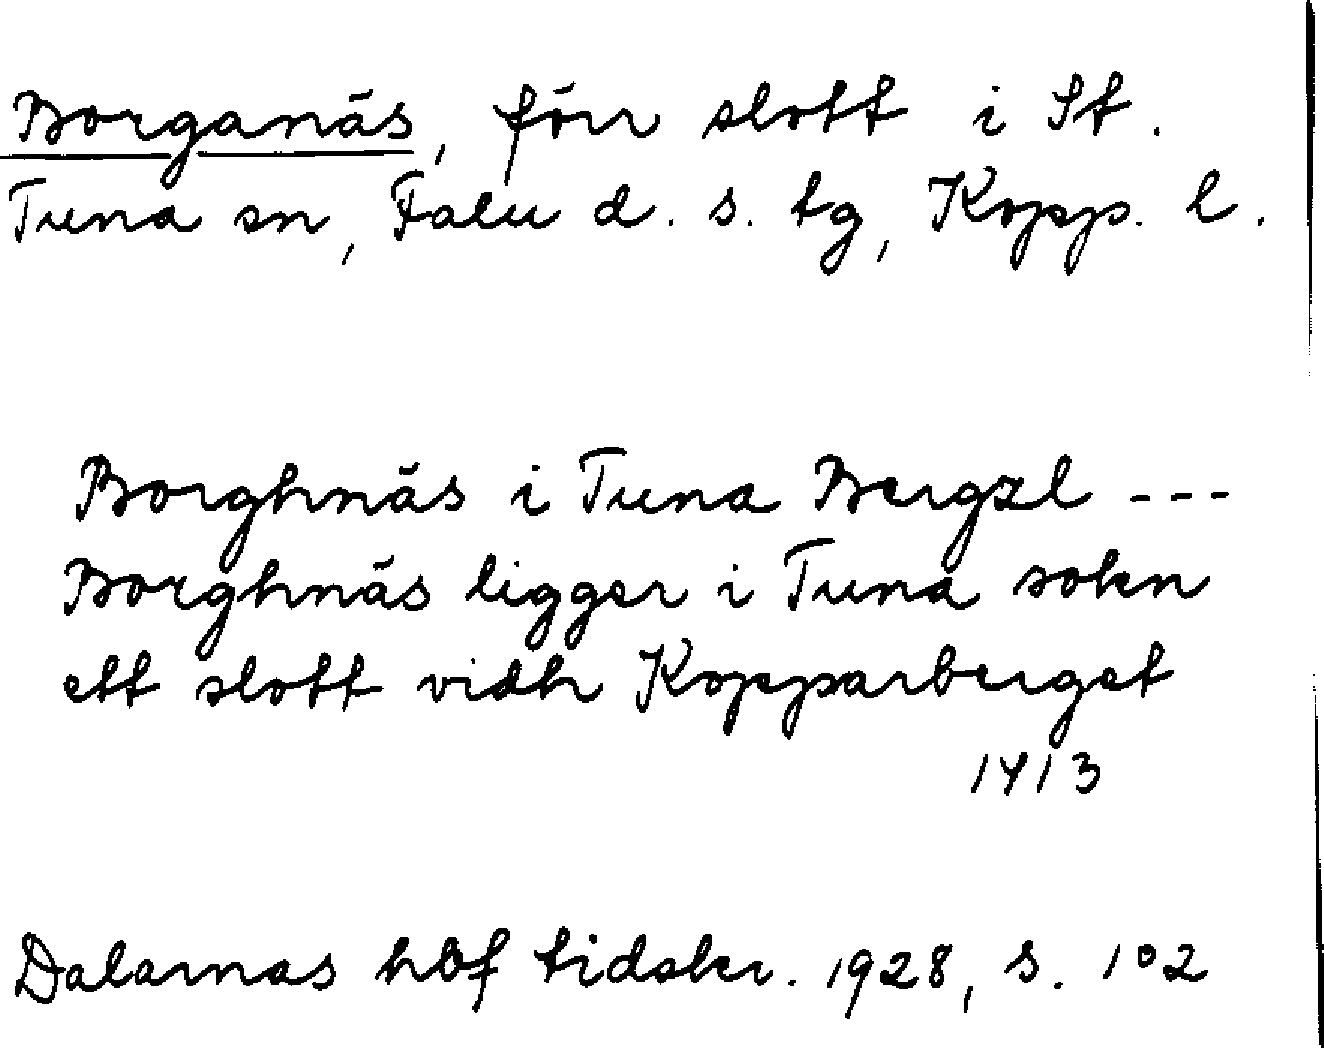 Borganäs, förr slott i St.
Tuna sn, Falu d. s. tg, Kopp. l.
Borghnäs i Tuna Bergzl ---
Borghnäs ligger i Tuna sokn
ett slott vidh Kopparberget
1413
Dalarnas hbf tidskr. 1928, s. 102